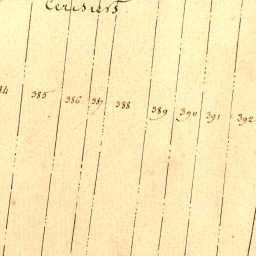 Cerisiers
385 386 387 388 389 390 391 392